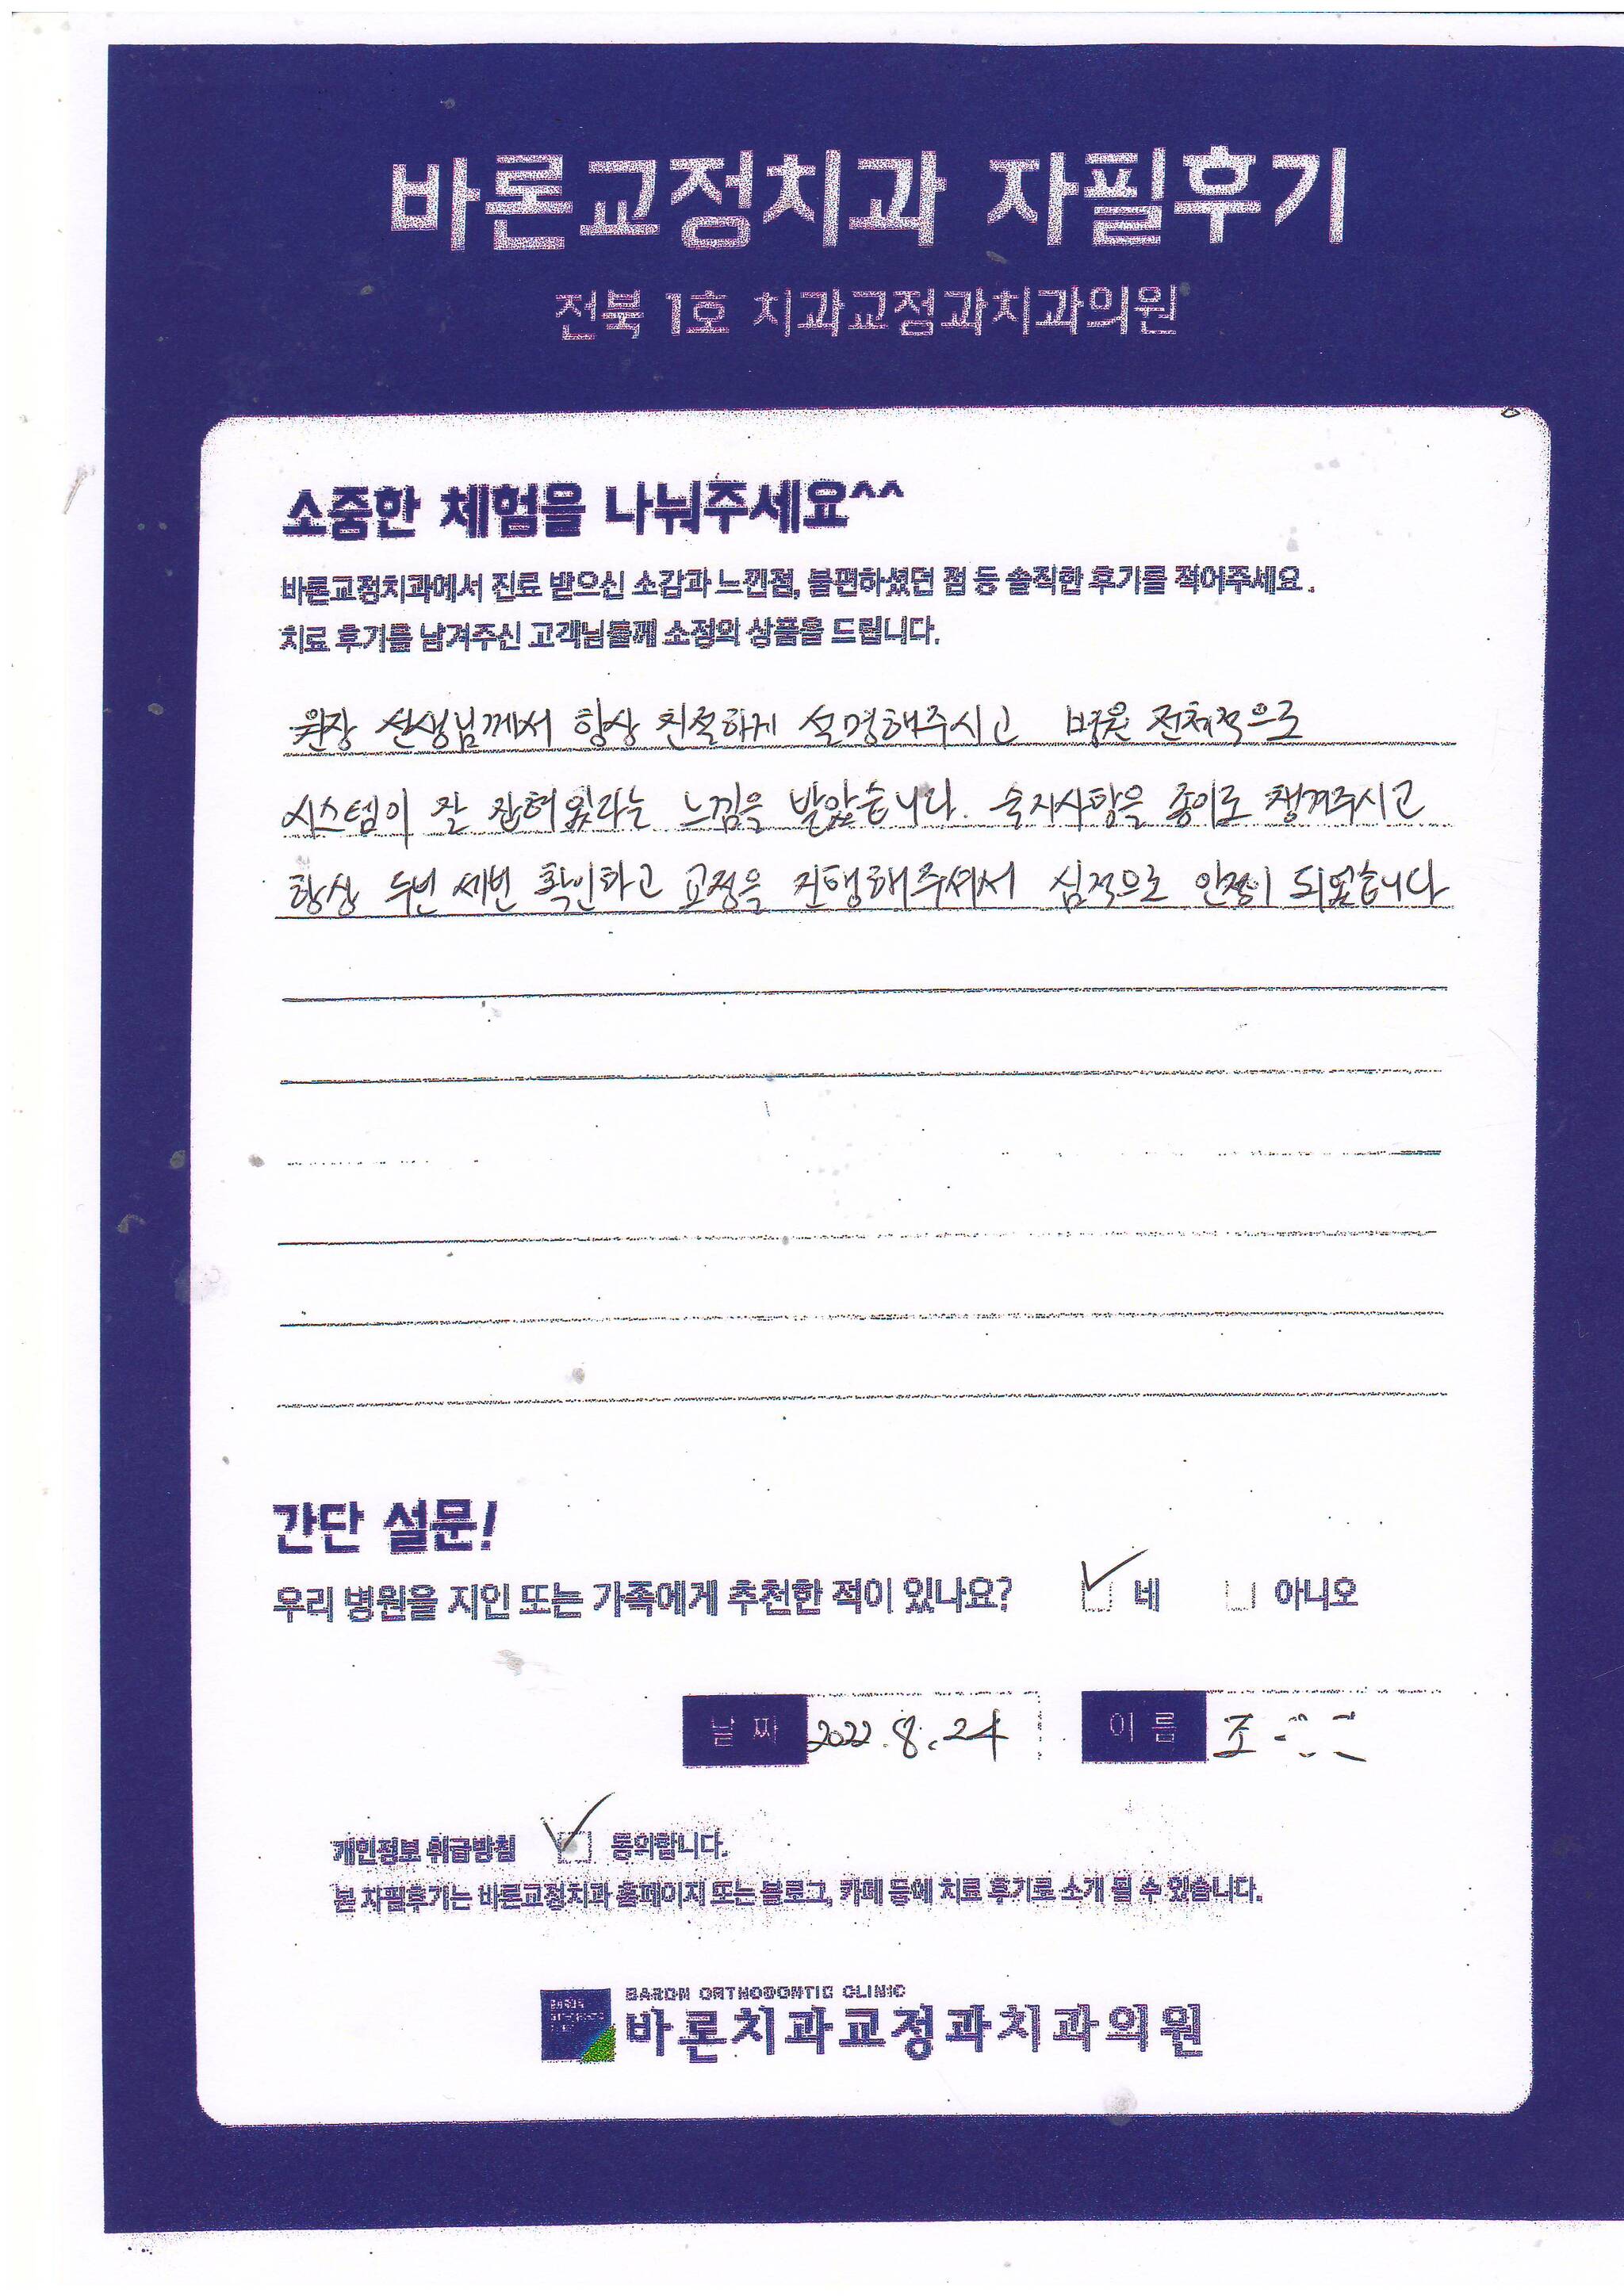 바론교정치과 자필후기
전북 1호 치과교정과치과의원
소중한 체험을 나눠주세요^^
바른교정치과에서 진료 받으신 소감과 느낀점, 불편하셨던 점 등 솔직한 후기를 적어주세요.
치료 후기를 남겨주신 고객님들께 소정의 상품을 드립니다.
원장 선생님께서 항상 친절하게 설명해주시고 병원 전체적으로
시스템이 잘 잡혀있다는 느낌을 받았습니다. 숙지사항을 종이로 챙겨주시고
항상 두번 세번 확인하고 교정을 진행해주셔서 심적으로 안정이 되었습니다
간단 설문!
우리 병원을 지인 또는 가족에게 추천한 적이 있나요? 네 아니오
날짜 2022.8.24 이름 조
개인정보 취급방침 동의합니다.
본 자필후기는 바른교정치과 홈페이지 또는 블로그, 카페 등에 치료 후기로 소개 될 수 있습니다.
BARON ORTHODONTIC CLINIC
바론치과교정과치과의원